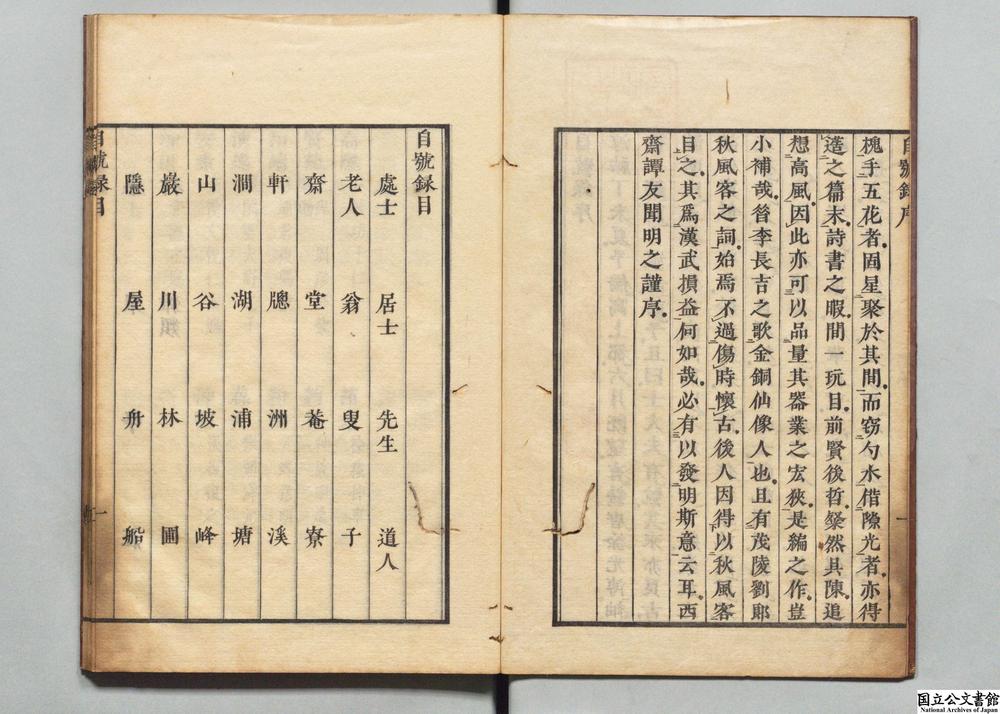 自號錄序
槐手五花者固星聚於其間而窃勺水借隙光者亦得
遙之篇末詩書之暇間一玩目前賢後哲粲然具陳追
想高風因此亦可以品量其器業之宏狹是編之作豈
小補哉昝李長吉之歌金銅仙像人也且有茂陵劉郎
秋風客之詞始焉不過傷時懷古後人因得以秋風客
目之其爲漢武損益何如哉必有以發明斯意云耳西
齋譚友聞明之謹序
一
自號録目
處士 居士 先生 道人
老人 翁 叟 子
齋 堂 菴 寮
軒 牕 洲 溪
澗 湖 浦 塘
山 谷 坡 峰
巖 川 林 圃
隱 屋 舟 船
自號録目
一
国立公文書館
National Archives of Japan